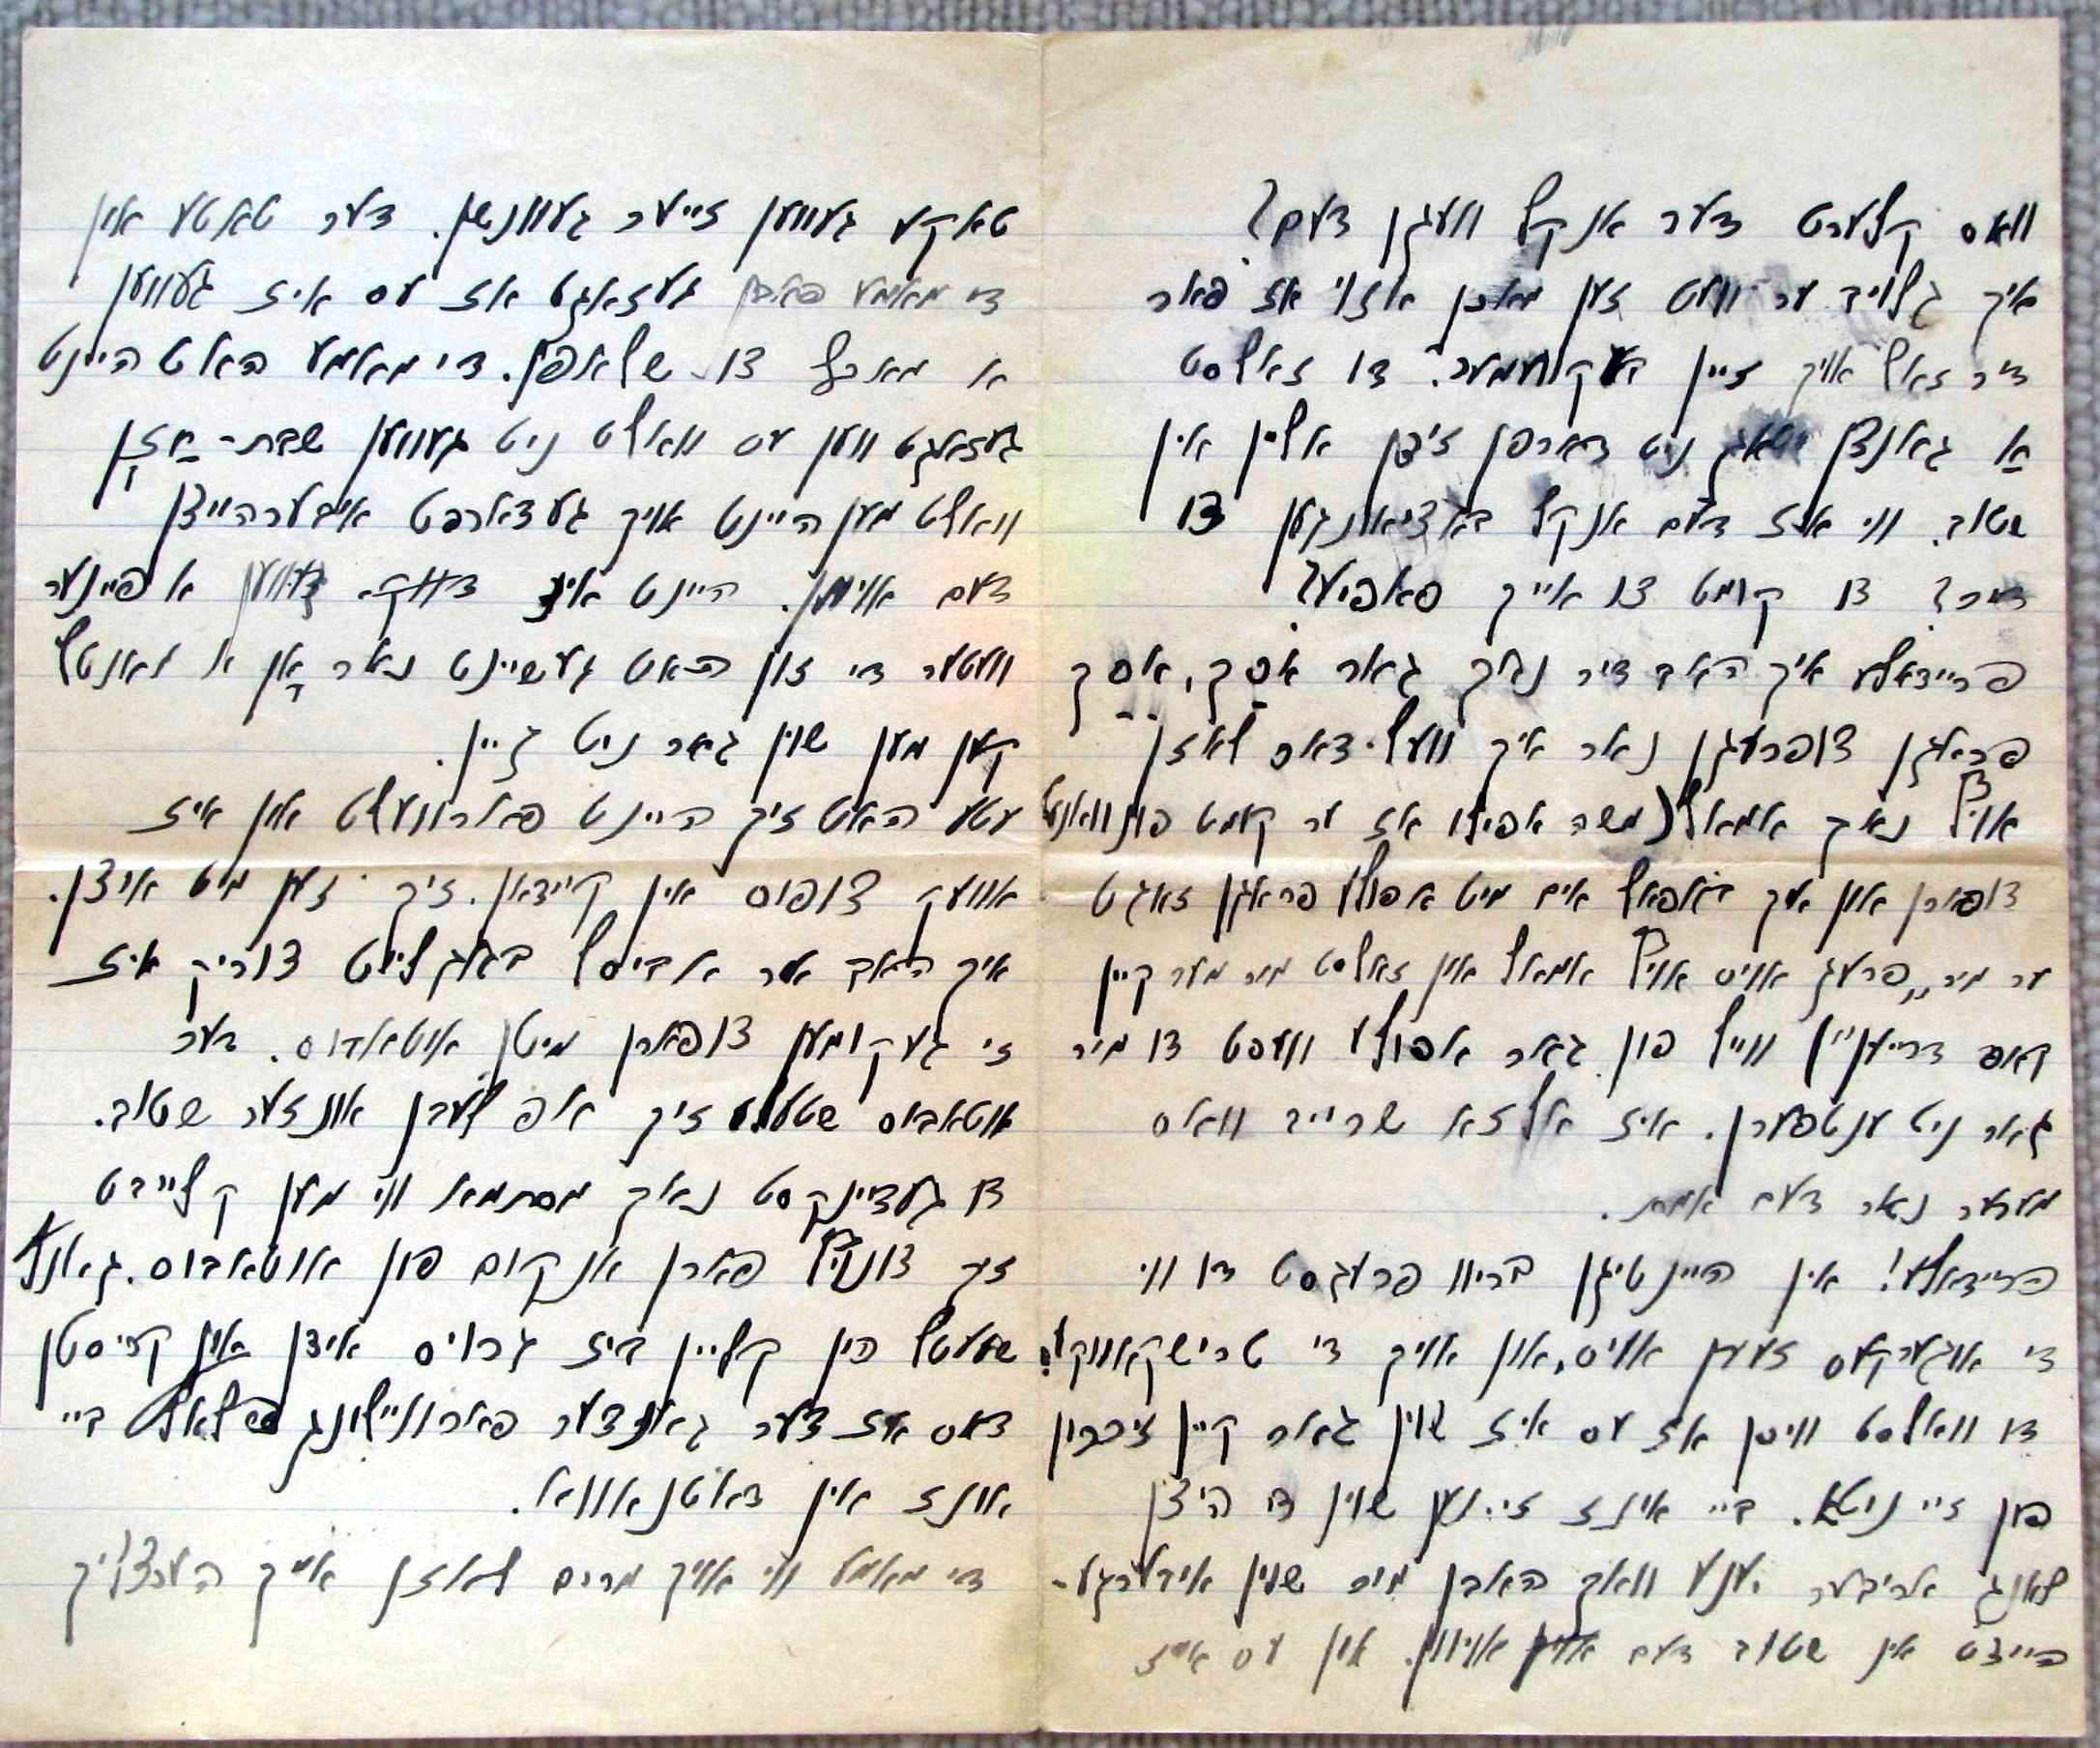 וואס קלערט דער אנקל וועגן דעם?
איך גלויב ער וועט זען מאכן אזוי אז פאר
דיר זאל אויך זיין בעקוועמער. דו זאלסט
א גאנצן טאג ניט דארפן זיצן אליין אין
שטוב. ווי איז דעם אנקל באציאונגען צו
דיר? דו קומט צו אייך סאפיע?
פריידאלע איך האב דיר נאך גאר אסך, אסך
פראגן צופרעגן נאר איך וועל דאס לאזן
אויף נאך אמאל (משה אפילו אז ער קומט פונוואנעט
צופארן און איך באפאל אים מיט אפולע פראגן זאגט
ער מיר "פרעג אויס אויף אמאל און זאלסט מיר מער קיין
קאפ דרייען") ווייל פון גאר אפולע וועסט דו מיר
גאר ניט ענטפערן. איז אלזא שרייב וואס
מערער נאר דעם אמת.
פריידאלע! אין היינטיגן בריוו פרעגסט דו ווי
די אוגערקעס זעען אויס, און אויך די טרישקאווקע?
דו וואלסט וויסן אז עס איז שוין גאר קיין זיכרון
פון זיי ניטא. ביי אונז זיינען שוין די היצן
לאנג אריבער יענע וואך האבן מיר שוין איבערגע-
הייצט אין שטוב דעם אויוון. און עס איז
טאקע געווען זייער געוונשן. דער טאטע און
די מאמע האבן געזאגט אז עס איז געווען
א מאכל צו שלאפן. די מאמע האט היינט
געזאגט ווען עס וואלט ניט געווען שבת- אזן
וואלט מען היינט אויך געדארפט איבערהייצן
דעם אויוון. היינט איז דווקא געווען א פיינער
וועטער די זון האט געשיינט נאר אן א מאנטל
קען מען שוין גאר ניט גיין.
עטע האט זיך היינט פארוועלט און איז
אוועק צופוס אין קיידאן. זיך זען מיט איצן.
איך האב איר אביסל באגלייט צוריק איז
זי געקומען צופארן מיטן אוטאבוס. דער
אוטאבוס שטעלט זיך אפ לעבן אונזער שטוב.
דו געדיינקסט נאך מסתמא ווי מען קלייבט
זיך צונויף פארן אנקום פון אוטאבוס. גאנץ
שטעטל פון קליין ביז גרויס אידן און קריסטן
דאס איז דער גאנצער פארווייילונג פלאץ ביי
אונז אין דאטנאווא.
די מאמע ווי אויך מרים לאזן אייך הערצליך